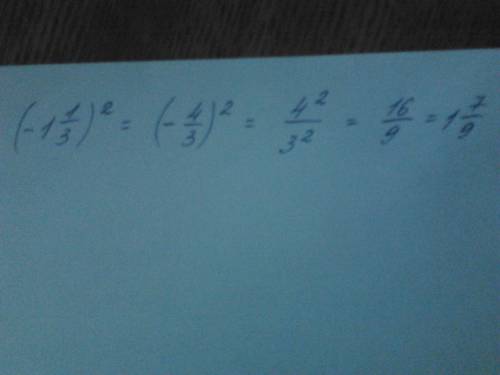 (-1 1/3)² = (-4/3)² = 4²/3² = 16/9 = 1 7/9